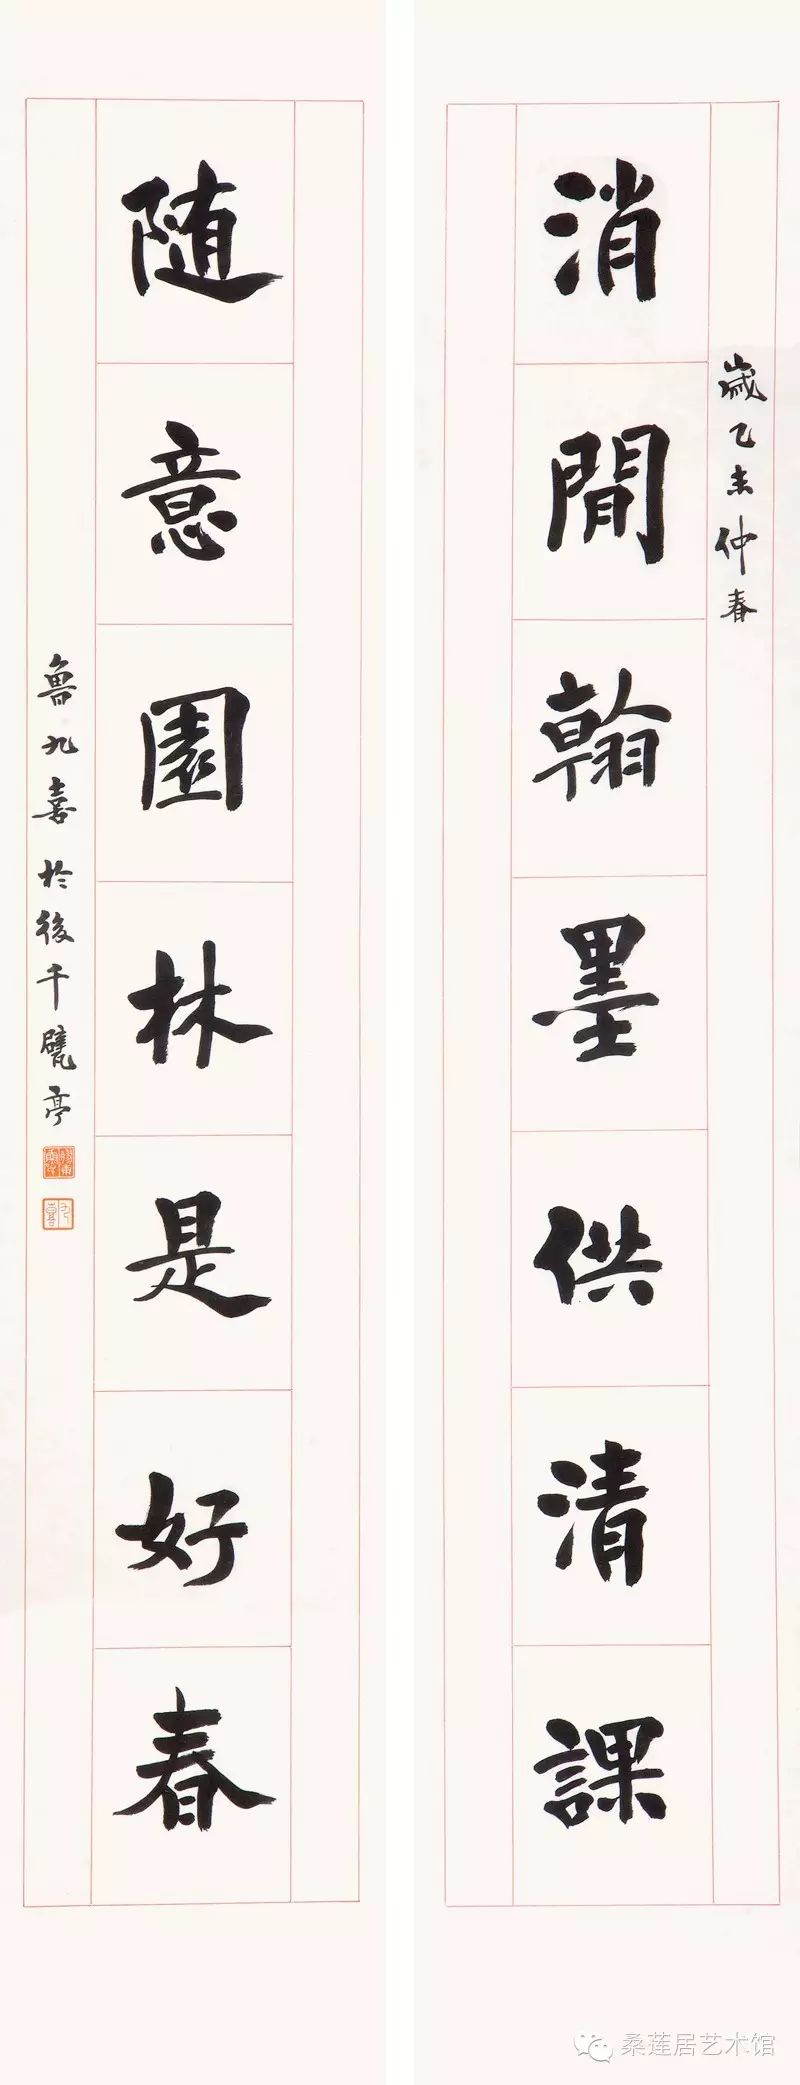 歲乙未仲春
消閒翰墨供清課
随意園林是好春
魯九喜於後千甓亭
九喜
桑莲居艺术馆